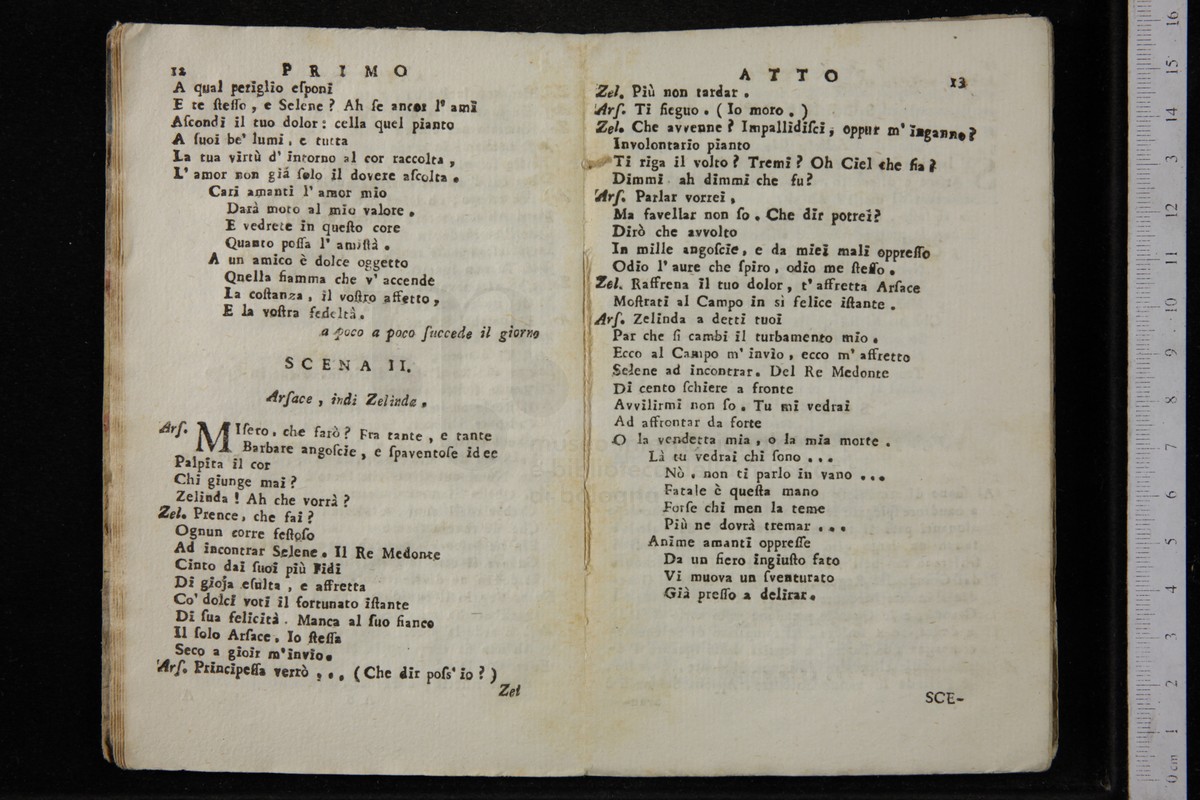 12 PRIMO
A qual periglio eſponi
E te ſteſſo, e Selene? Ah ſe ancor l'ami
Aſcondi il tuo dolor: cella quel pianto
A ſuoi be' lumi, e tutta
La tua virtù d'intorno al cor raccolta,
L'amor non giá ſolo il dovere aſcolta.
Cari amanti l'amor mio
Darà moto al mio valore.
E vedrete in queſto core
Quanto poſſa l'amiſtà.
A un amico è dolce oggetto
Qnella fiamma che v'accende
La coſtanza, il voſtro affetto,
E la voſtra fedeltà.
a poco a poco ſuccede il giorno
SCENA II.
Arſace, indi Zelinda.
Arſ. MIſero, che farò? Fra tante, e tante
Barbare angoſcie, e ſpaventoſe idee
Palpita il cor
Chi giunge mai?
Zelinda! Ah che vorrà?
Zel. Prence, che fai?
Ognun corre feſtoſo
Ad incontrar Selene. Il Re Medonte
Cinto dai ſuoi più Fidi
Di gioja eſulta, e affretta
Co' dolci voti il fortunato iſtante
Di ſua felicità. Manca al ſuo fianco
Il ſolo Arſace. Io ſteſſa
Seco a gioir m'invio.
Arſ. Principeſſa verrò ... (Che dir poſs'io?)
Zel
ATTO 13
Zel. Più non tardar.
Arſ. Ti ſieguo. (Io moro.)
Zel. Che avvenne? Impallidiſci, oppur m'inganno?
Involontario pianto
Ti riga il volto? Tremi? Oh Ciel che fia?
Dimmi ah dimmi che fu?
Arſ. Parlar vorrei,
Ma favellar non ſo. Che dir potrei?
Dirò che avvolto
In mille angoſcie, e da miei mali oppreſſo
Odio l'aure che ſpiro, odio me ſteſſo.
Zel. Raffrena il tuo dolor, t'affretta Arſace
Moſtrati al Campo in sì felice iſtante.
Arſ. Zelinda a detti tuoi
Par che ſi cambi il turbamento mio.
Ecco al Campo m'invio, ecco m'affretto
Selene ad incontrar. Del Re Medonte
Di cento ſchiere a fronte
Avvilirmi non ſo. Tu mi vedrai
Ad affrontar da forte
O la vendetta mia, o la mia morte.
Là tu vedrai chi ſono ...
Nò, non ti parlo in vano ...
Fatale è queſta mano
Forſe chi men la teme
Più ne dovrà tremar ...
Anime amanti oppreſſe
Da un fiero ingiuſto fato
Vi muova un ſventurato
Già preſſo a delirar.
SCE-
16
15
14
3
12
11
10
9
8
7
6
5
4
3
2
1
0 cm